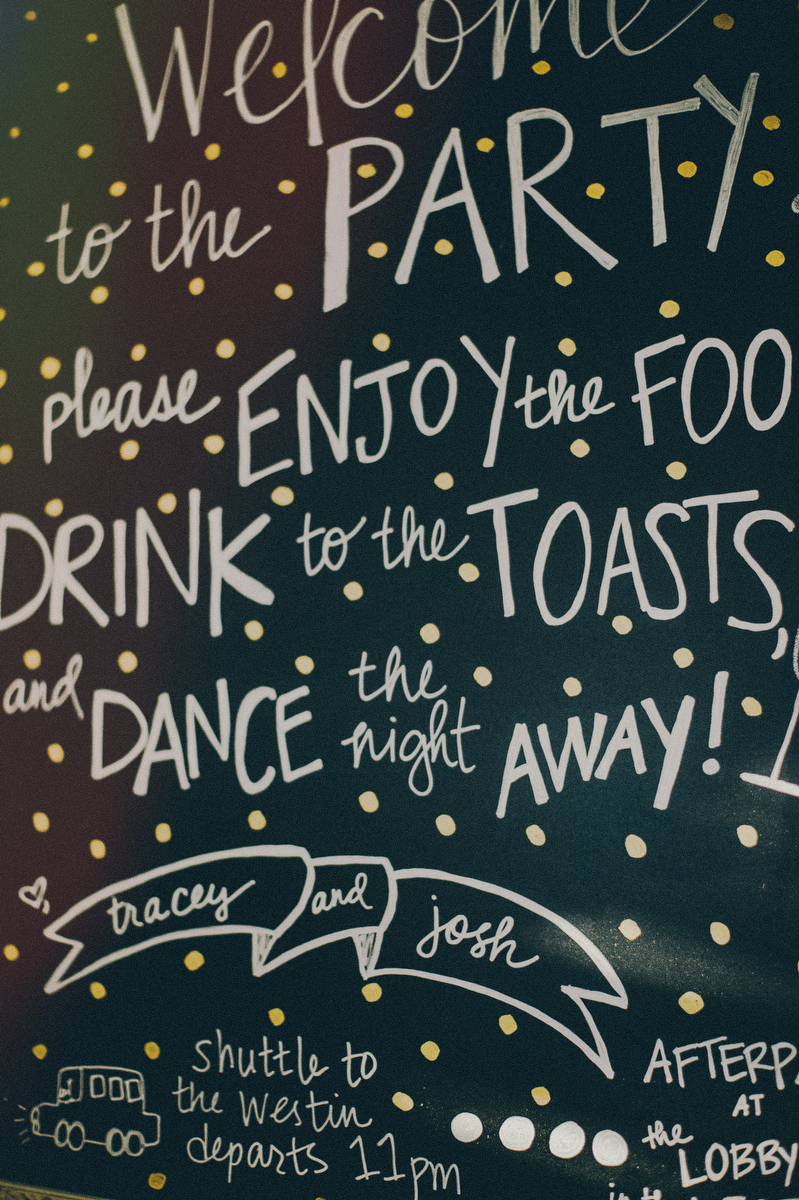 Welcome
to the PARTY
please ENJOY the FOO
DRINK to the TOASTS,
and DANCE the night AWAY!
tracey and josh
shuttle to
the Westin
departs 11pm
AFTERPA
AT
the LOBBY
in the